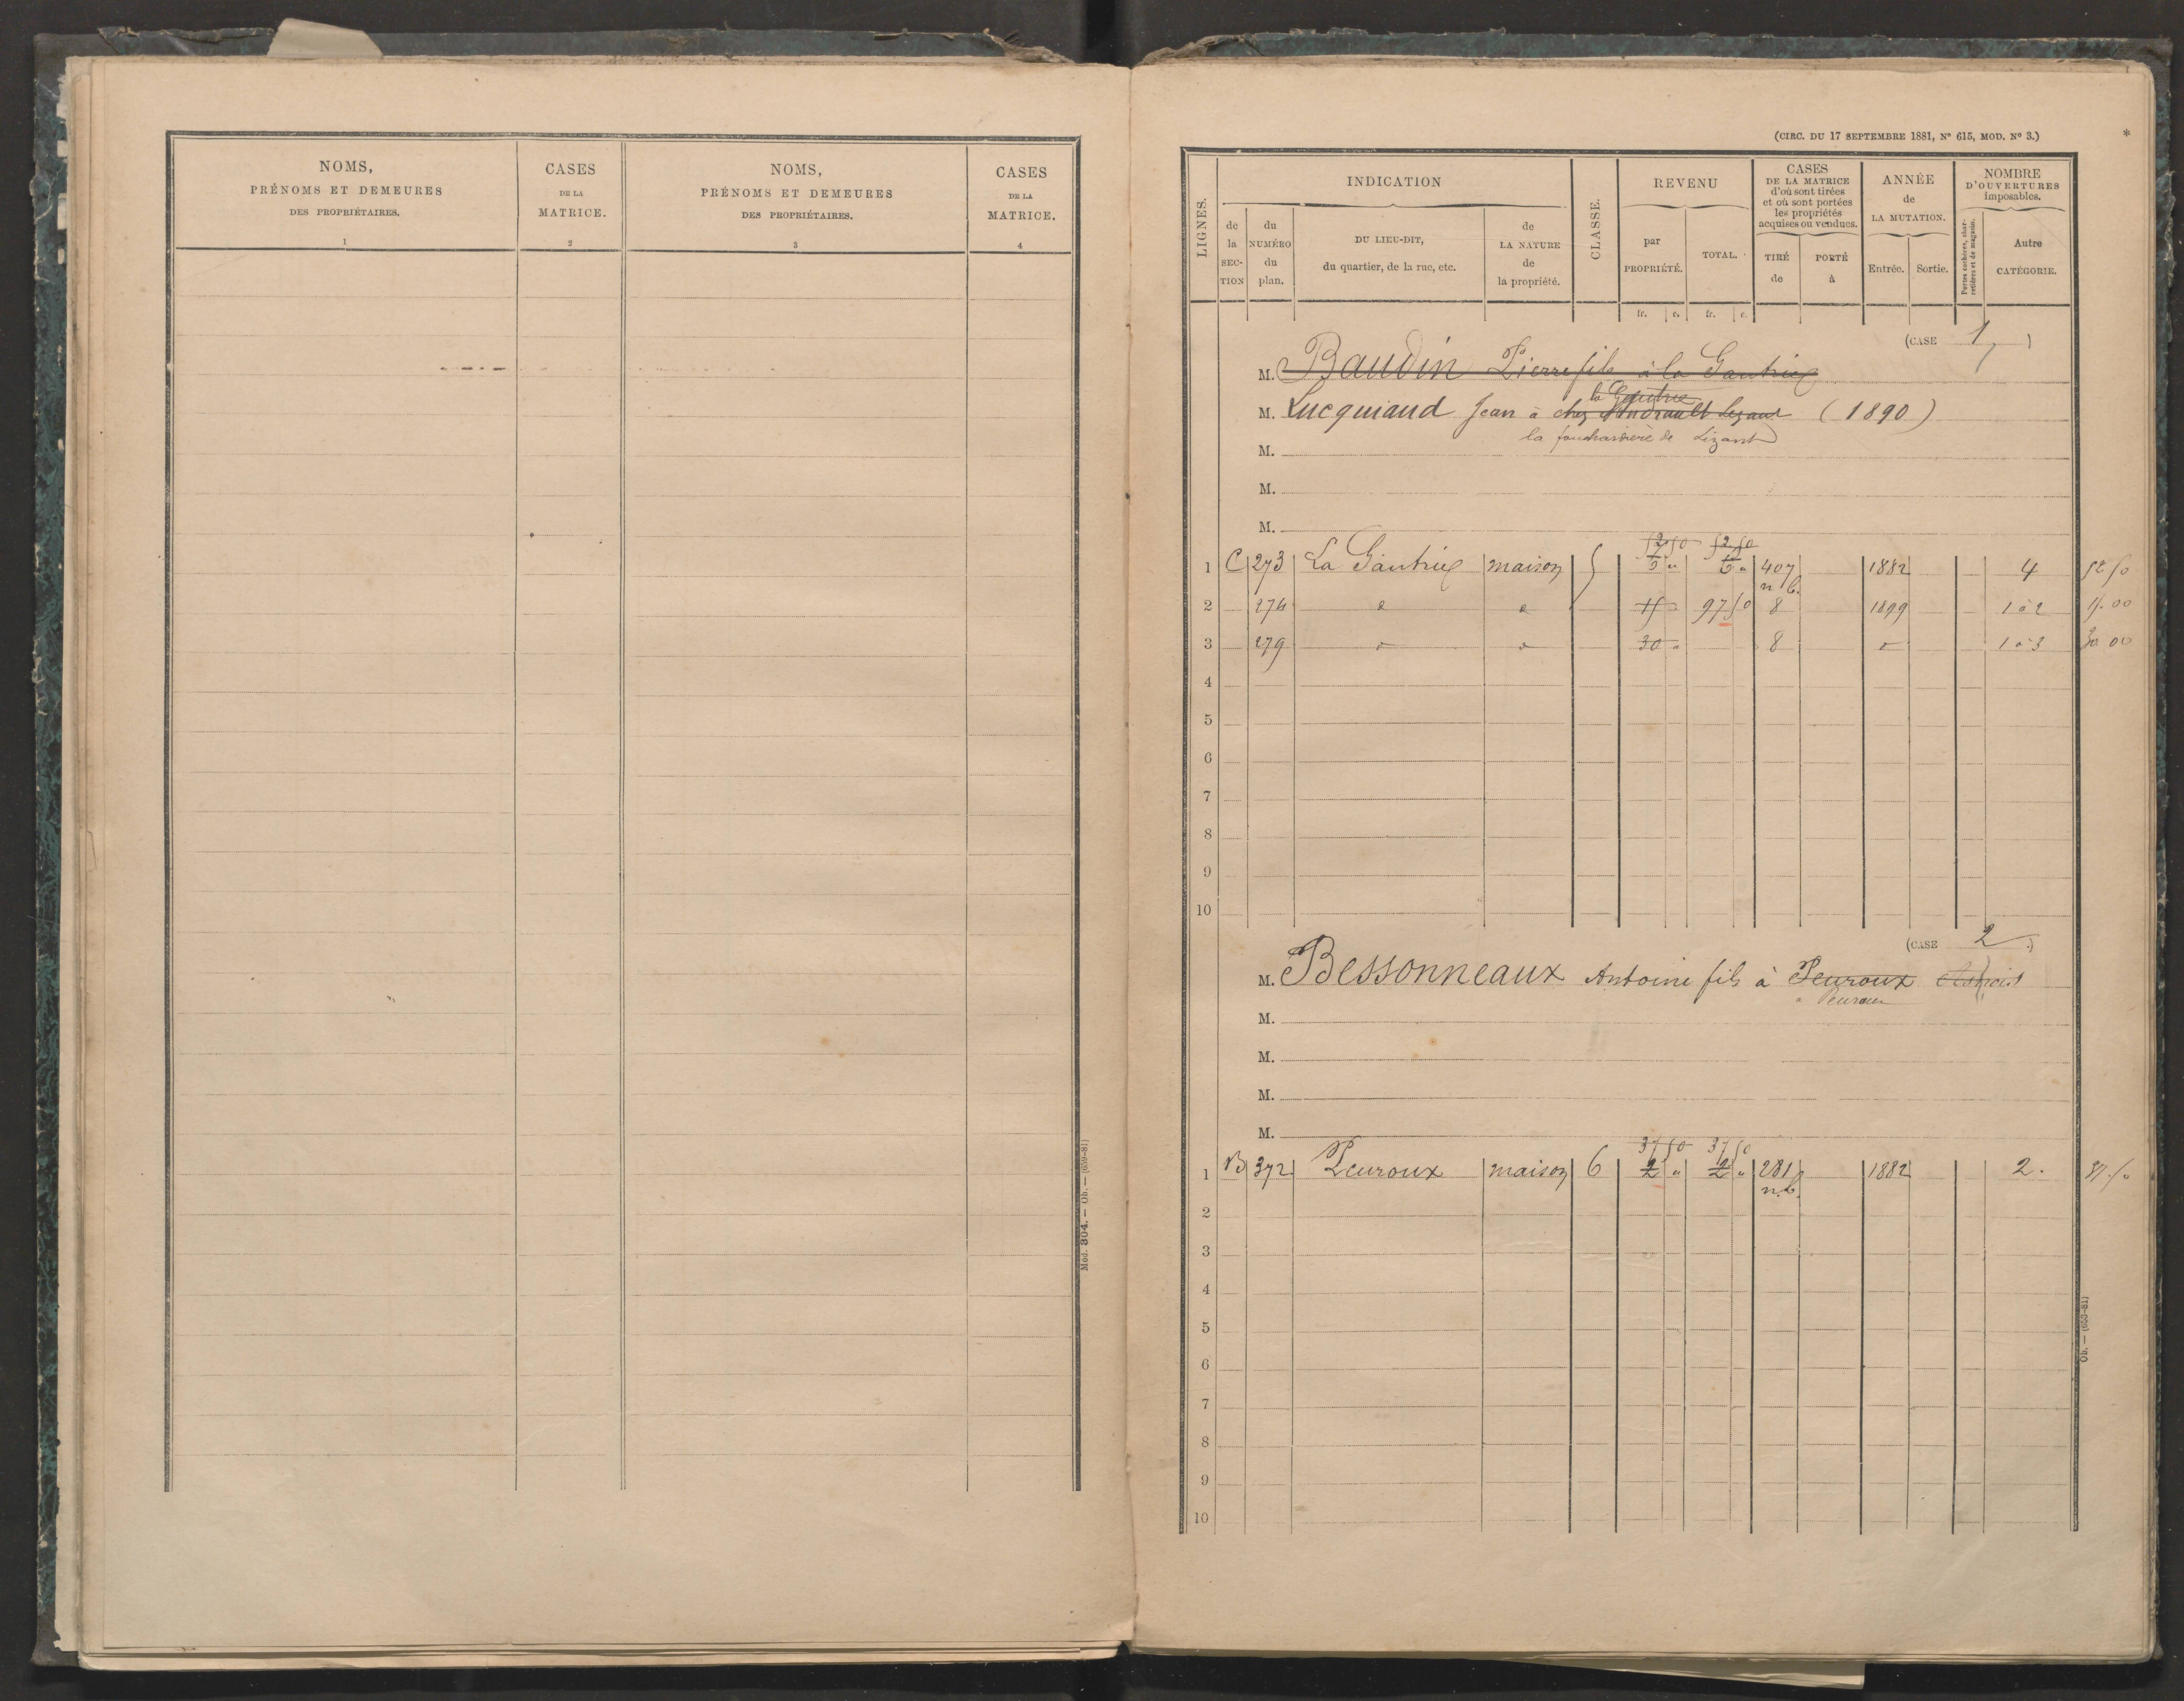 NOMS,
PRÉNOMS ET DEMEURES
DES PROPRIÉTAIRES.
1
CASES
DE LA
MATRICE.
2
NOMS,
PRÉNOMS ET DEMEURES
DES PROPRIÉTAIRES.
3
CASES
DE LA
MATRICE.
4
Mod. 304. — Ob. — (659-81)
(CIRC. DU 17 SEPTEMBRE 1881, N° 615, MOD. N° 3.)
*
LIGNES.
INDICATION
de la SECTION
du NUMÉRO du plan.
DU LIEU-DIT,
du quartier, de la rue, etc.
de LA NATURE de la propriété.
CLASSE.
REVENU
par PROPRIÉTÉ.
TOTAL.
CASES
DE LA MATRICE
d'où sont tirées
et où sont portées
les propriétés
acquises ou vendues.
TIRÉ de
PORTÉ à
ANNÉE
de
LA MUTATION.
Entrée.
Sortie.
NOMBRE
D'OUVERTURES
imposables.
Portes cochères, charretières et de magasin.
Autre CATÉGORIE.
fr. c. fr. c.
(CASE 1)
M. Baudin Pierre fils à la Gautrie
la Gautrie
M. Lucquiaud Jean à chez (1890)
la de Lizant
M.
M.
M.
52 50 52 50
1 C 273 La Gautrie maison 407 1882 4 52 50
n.b.
2 274 15 97 50 8 1899 1 à 2 15.00
3 279 30 8 1 à 3 30 00
4
5
6
7
8
9
10
(CASE 2)
M. Bessonneaux Antoine fils à Peuroux
à Peuroux
M.
M.
M.
M.
37 50 37 50
1 B 372 Peuroux maison 6 2 " 2 " 281 1882 2. 37.50
n.b.
2
3
4
5
6
7
8
9
10
Ob. — (653-81)